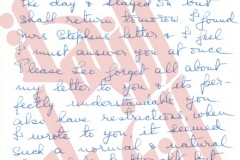 the day & stayed So but
shall return tomorow. I found
Mrs Stephens letter & I feel
I must answer you at once
Please Leo forget all about
my letter to you & its per-
fectly understandable you
also have restrictions when
I wrote to you it seemed
Such a normal & natural